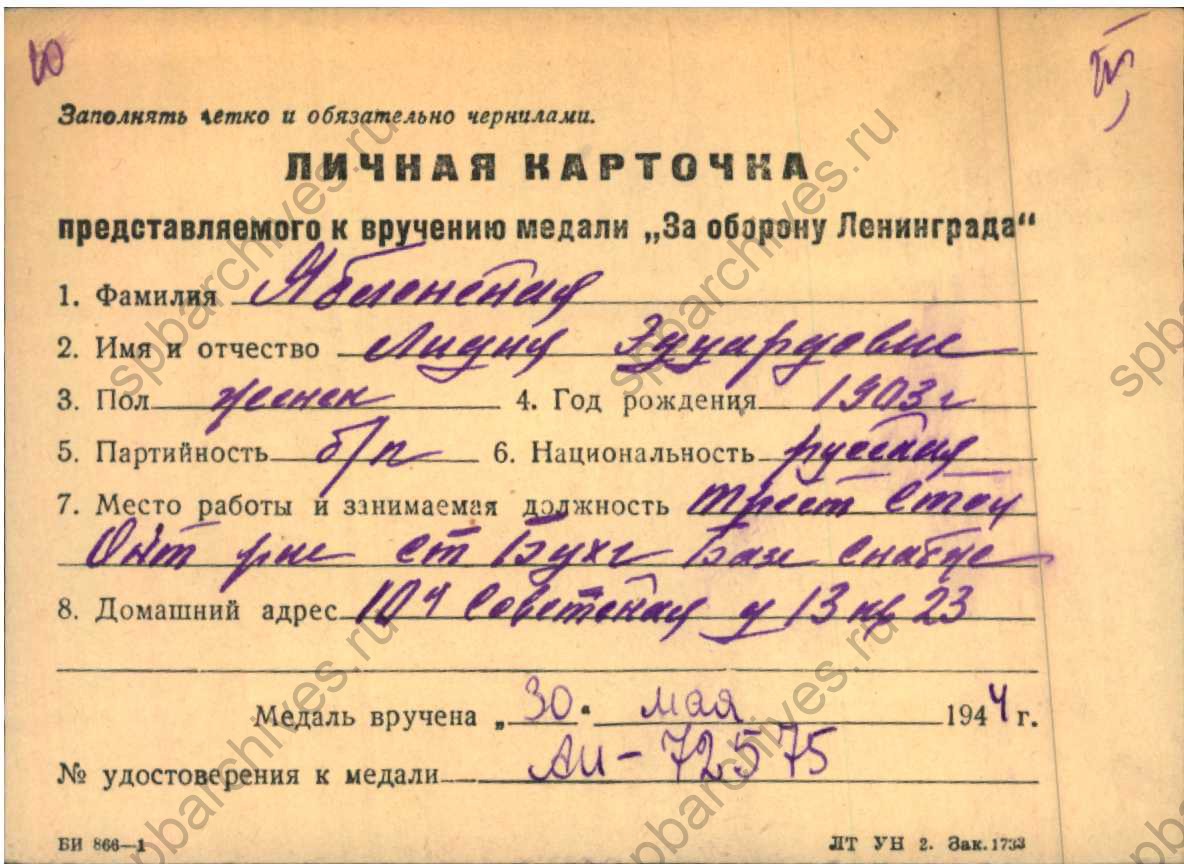 Ю
Заполнять четко и обязательно чернилами.
ЛИЧНАЯ КАРТОЧКА
представляемого к вручению медали „За оборону Ленинграда“
1. Фамилия Яблонская
2. Имя и отчество Лидия Эдуардовне
3. Пол женск 4. Год рождения 1903 г
5. Партийность б/п 6. Национальность русская
7. Место работы и занимаемая должность трест Стол
Окт рне ст Бухг Базы
8. Домашний адрес 10я Советская д 13 кв 23
Медаль вручена „30“ мая 1944 г.
№ удостоверения к медали АИ-72575
БИ 866—1 ЛТ УН 2. Зак. 1733
spbarchives.ru